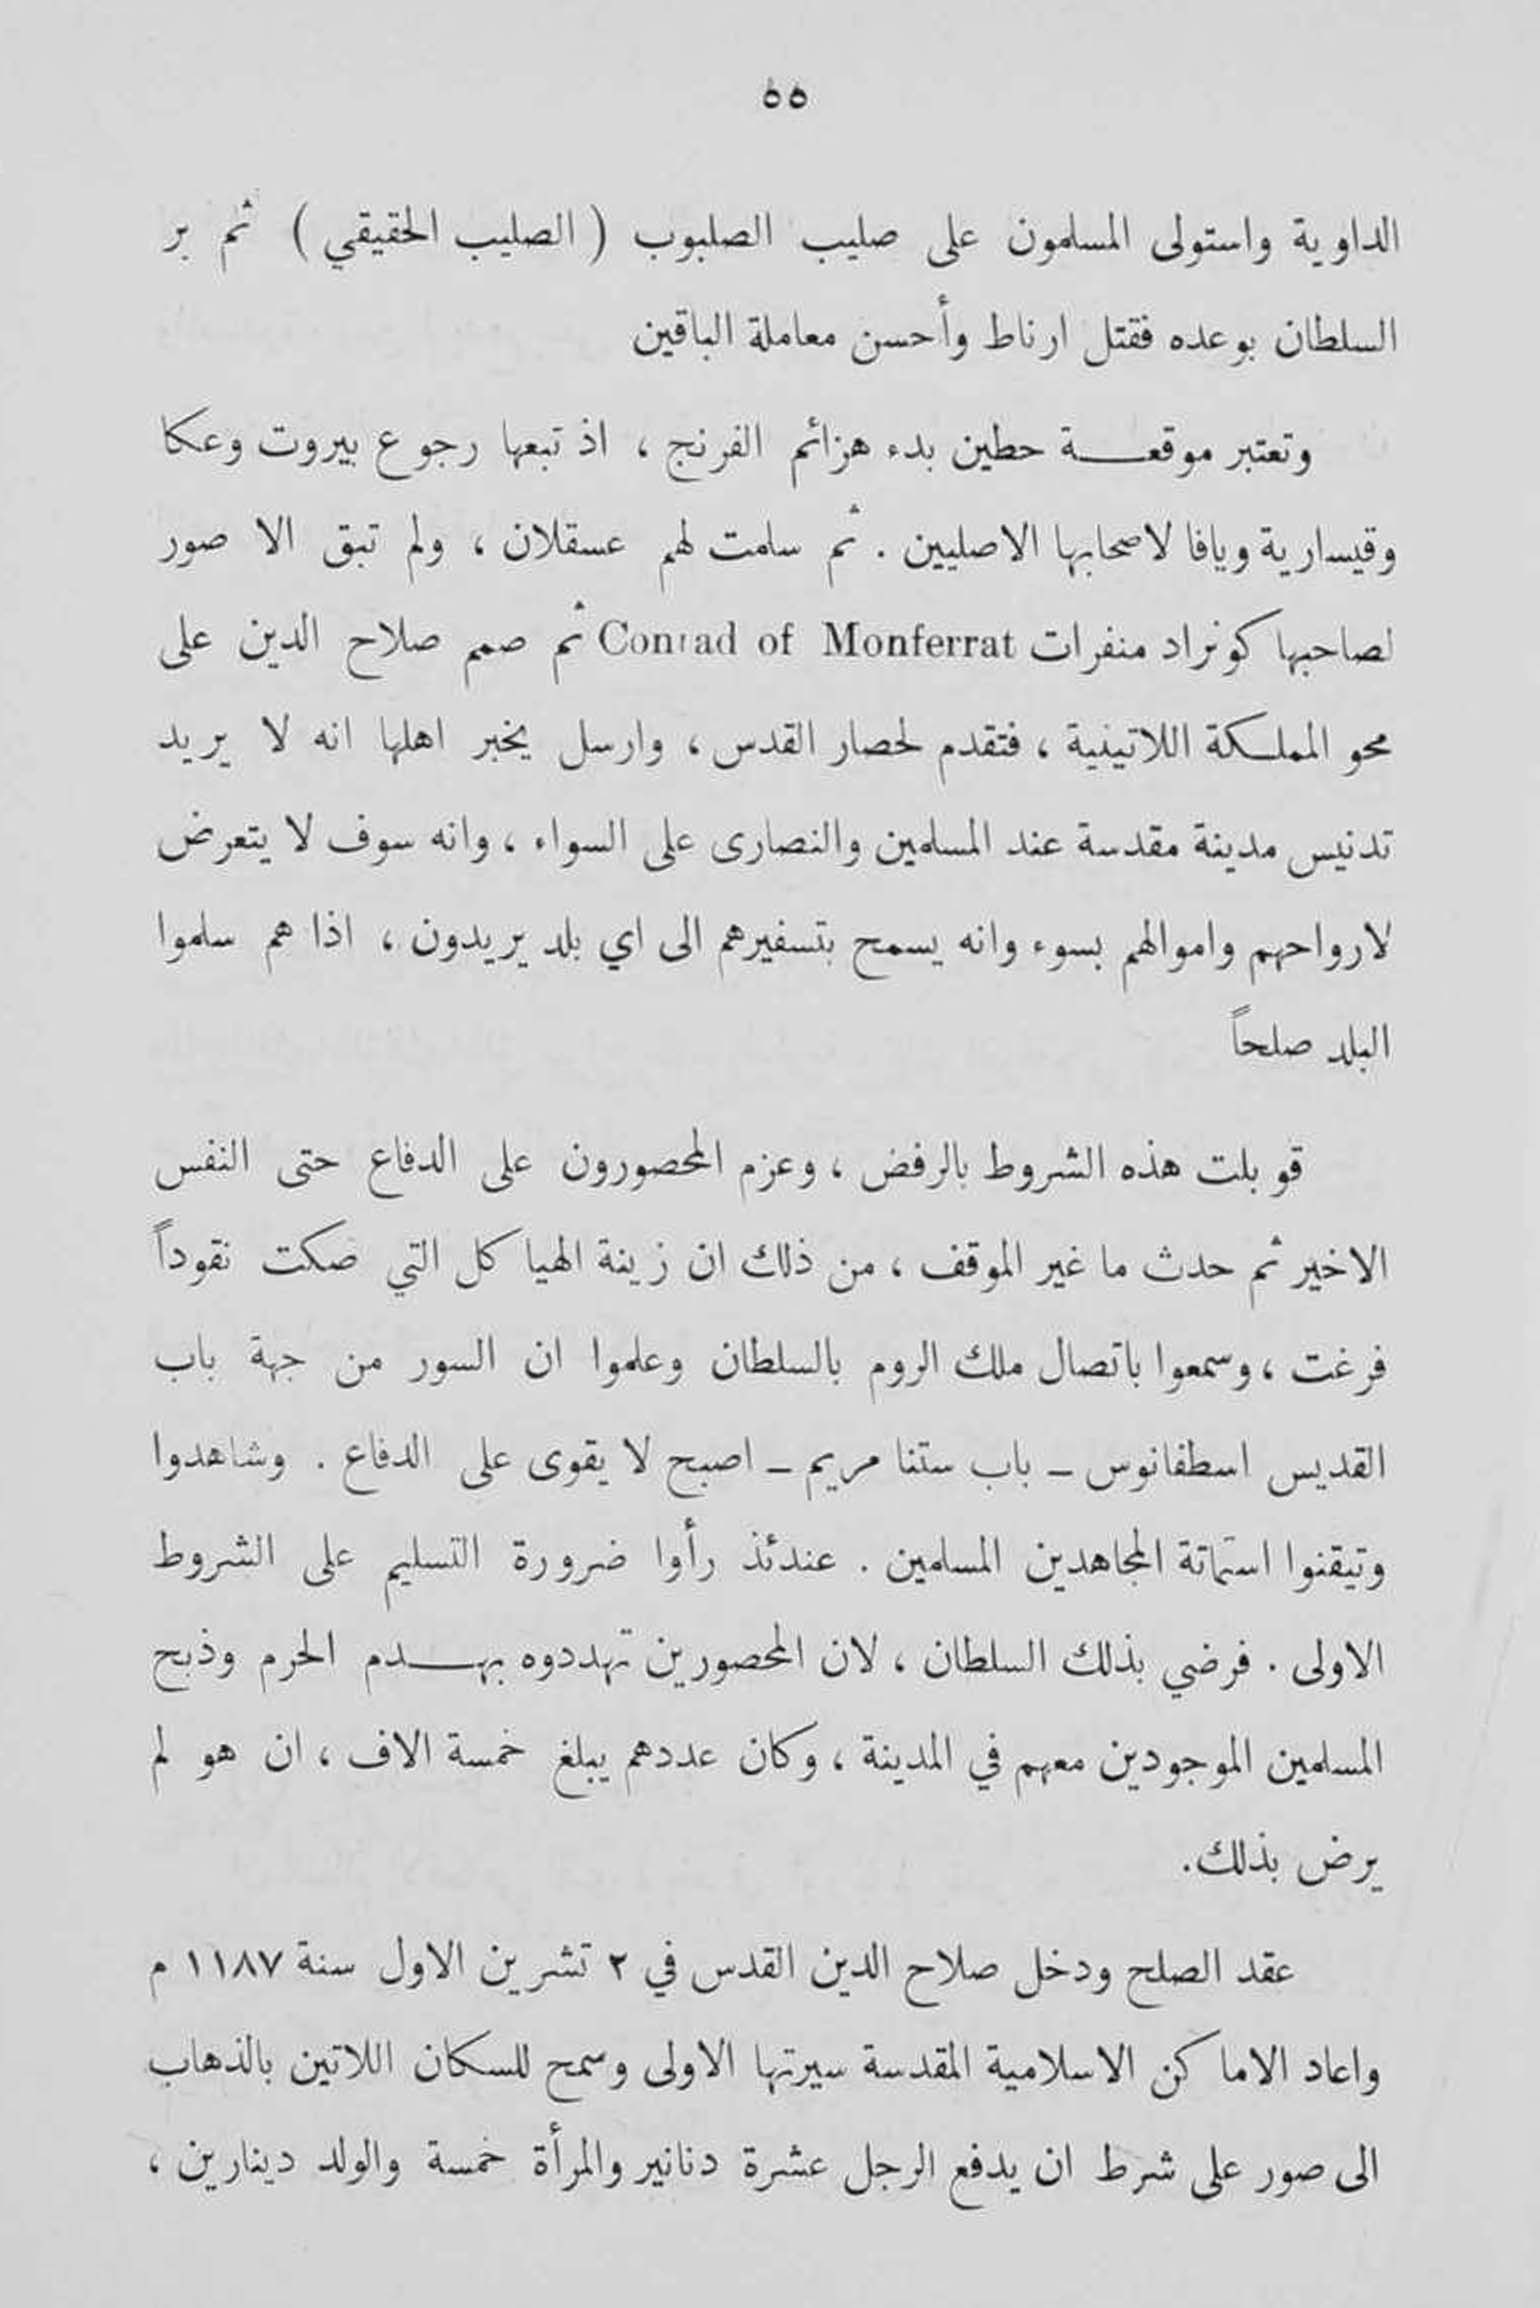 ٥٥
الداوية واستولى المسلمون على صليب الصلبوب ( الصليب الحقيقي ) ثم بر
السلطان بوعده فقتل ارناط وأحسن معاملة الباقين
وتعتبر موقعة حطين بدء هزائم الفرنج ، اذ تبعها رجوع بيروت وعكا
وقيسارية ويافا لاصحابها الاصليين . ثم سلمت لهم عسقلان ، ولم تبق الا صور
لصاحبها كونراد منفرات Conrad of Monferrat ثم صمم صلاح الدين على
محو المملكة اللاتينية ، فتقدم لحصار القدس ، وارسل يخبر اهلها انه لا يريد
تدنيس مدينة مقدسة عند المسلمين والنصارى على السواء ، وانه سوف لا يتعرض
لارواحهم واموالهم بسوء وانه يسمح بتسفيرهم الى اي بلد يريدون ، اذا هم سلموا
البلد صلحاً
قوبلت هذه الشروط بالرفض ، وعزم المحصورون على الدفاع حتى النفس
الاخير ثم حدث ما غير الموقف ، من ذلك ان زينة الهياكل التي صكت نقوداً
فرغت ، وسمعوا باتصال ملك الروم بالسلطان وعلموا ان السور من جهة باب
القديس اسطفانوس – باب ستنا مريم – اصبح لا يقوى على الدفاع . وشاهدوا
وتيقنوا استماتة المجاهدين المسلمين . عندئذ رأوا ضرورة التسليم على الشروط
الاولى . فرضي بذلك السلطان ، لان المحصورين تهددوه بهدم الحرم وذبح
المسلمين الموجودين معهم في المدينة ، وكان عددهم يبلغ خمسة الاف ، ان هو لم
يرض بذلك.
عقد الصلح ودخل صلاح الدين القدس في ٢ تشرين الاول سنة ١١٨٧ م
واعاد الاماكن الاسلامية المقدسة سيرتها الاولى وسمح للسكان اللاتين بالذهاب
الى صور على شرط ان يدفع الرجل عشرة دنانير والمرأة خمسة والولد دينارين ،